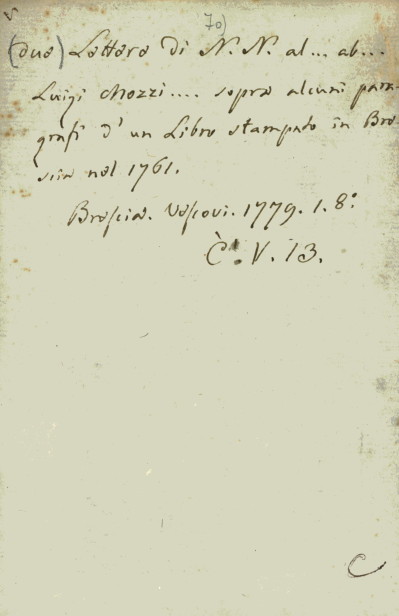 70)
(due) Lettere di N. N. al... ab...
Luigi Mozzi.... sopra alcuni para-
grafi d'un Libro stampato in Bre-
scia nel 1761.
Brescia. Vescovi. 1779. 1. 8:
C. V. 13.
C